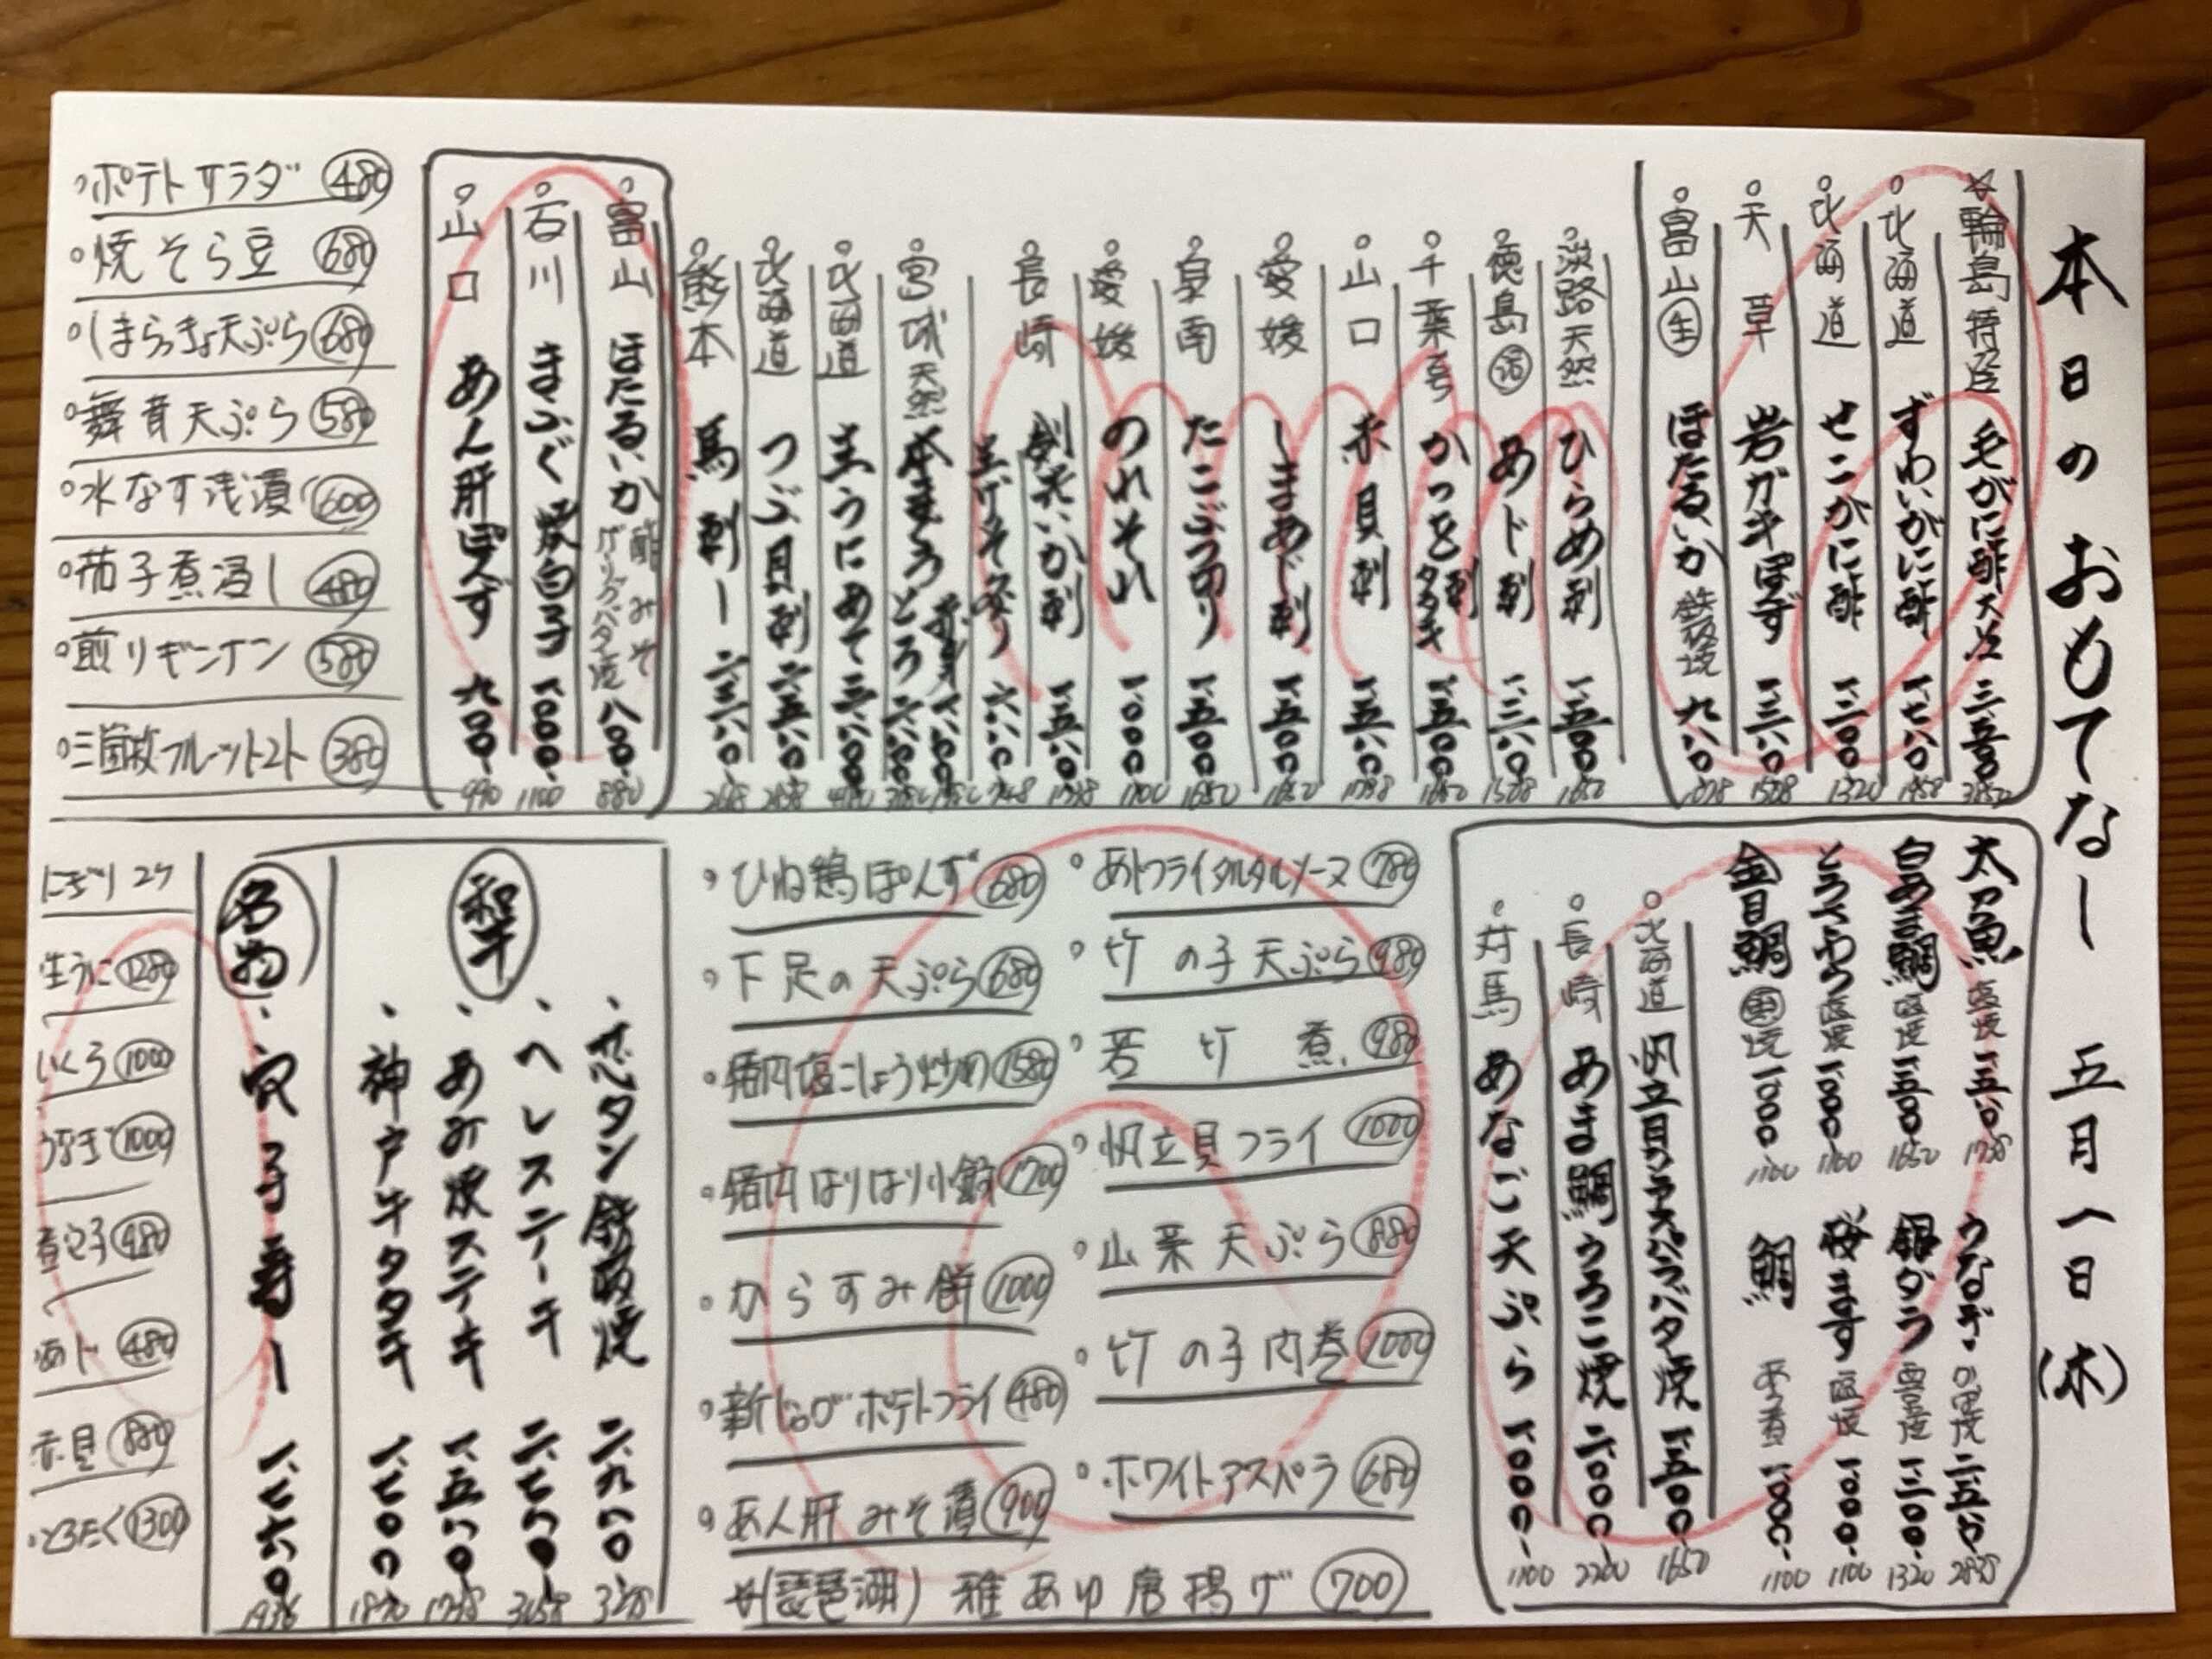 本日のおもてなし 五月一日(木)
☆輪島 特 毛がに酢 三、五〇〇 3850
北海道 ずわいがに酢 一、七八〇 1958
北海道 せこがに酢 一、二〇〇 1320
天草 岩ガキぽんず
富山 生 ほたるいか 鉄板焼 九八〇 1078
淡路天然 ひらめ刺 一、五〇〇 1650
徳島 活 あじ刺
千葉 かつを刺 タタキ 一、五〇〇 1650
山口 赤貝刺 一、五八〇 1738
愛媛 しまあじ刺 一、五〇〇 1650
泉南 たこぶつ切り 一、五〇〇 1650
愛媛 のれそれ 一、〇〇〇 1100
長崎 剣先いか刺 一、五八〇 1738
宮城 天然 本まぐろ とろ
北海道 生うに
北海道 つぶ貝刺
熊本 馬刺し
富山 ほたるいか 酢みそ ガーリックバター焼 八〇〇 880
石川 まふぐ 焼白子 一、〇〇〇 1100
山口 あん肝ぽんず 九〇〇 990
ポテトサラダ 480
焼そら豆 680
しまらっきょ天ぷら 680
舞茸天ぷら 580
水なす浅漬 600
茄子煮浸し 480
煎りギンナン 580
フルーツトマト 380
太刀魚 塩焼 一、五八〇 1738
白あま鯛 塩焼 一、五〇〇 1650
とろさわら 塩焼 一、〇〇〇 1100
金目鯛 一、〇〇〇 1100
うなぎ
銀ダラ 西京焼 一、二〇〇 1320
桜ます 塩焼 一、〇〇〇 1100
鯛 あら煮 一、〇〇〇 1100
北海道 帆立貝 バタ焼 一、五〇〇 1650
長崎 あま鯛うろこ焼 二、〇〇〇 2200
対馬 あなご天ぷら 一、〇〇〇 1100
あじフライタルタルソース 780
竹の子天ぷら 980
若竹煮 980
帆立貝フライ 1000
山菜天ぷら 880
竹の子肉巻 1000
ホワイトアスパラ 680
ひね鶏ぽんず 680
下足の天ぷら 680
猪肉塩こしょう炒め 1580
猪肉はりはり小鍋 1700
からすみ餅 1000
新じゃがポテトフライ 480
あん肝みそ漬 900
(琵琶湖) 稚あゆ唐揚げ 700
和牛
芯タン鉄板焼
ヘレステーキ
あみ焼ステーキ
神戸牛タタキ 一、七〇〇 1870
名物
穴子寿し 一、七六〇 1936
にぎり 2ケ
生うに 1280
いくら 1000
うなぎ 1000
煮穴子 480
あじ 480
赤貝 880
とろたく 1300